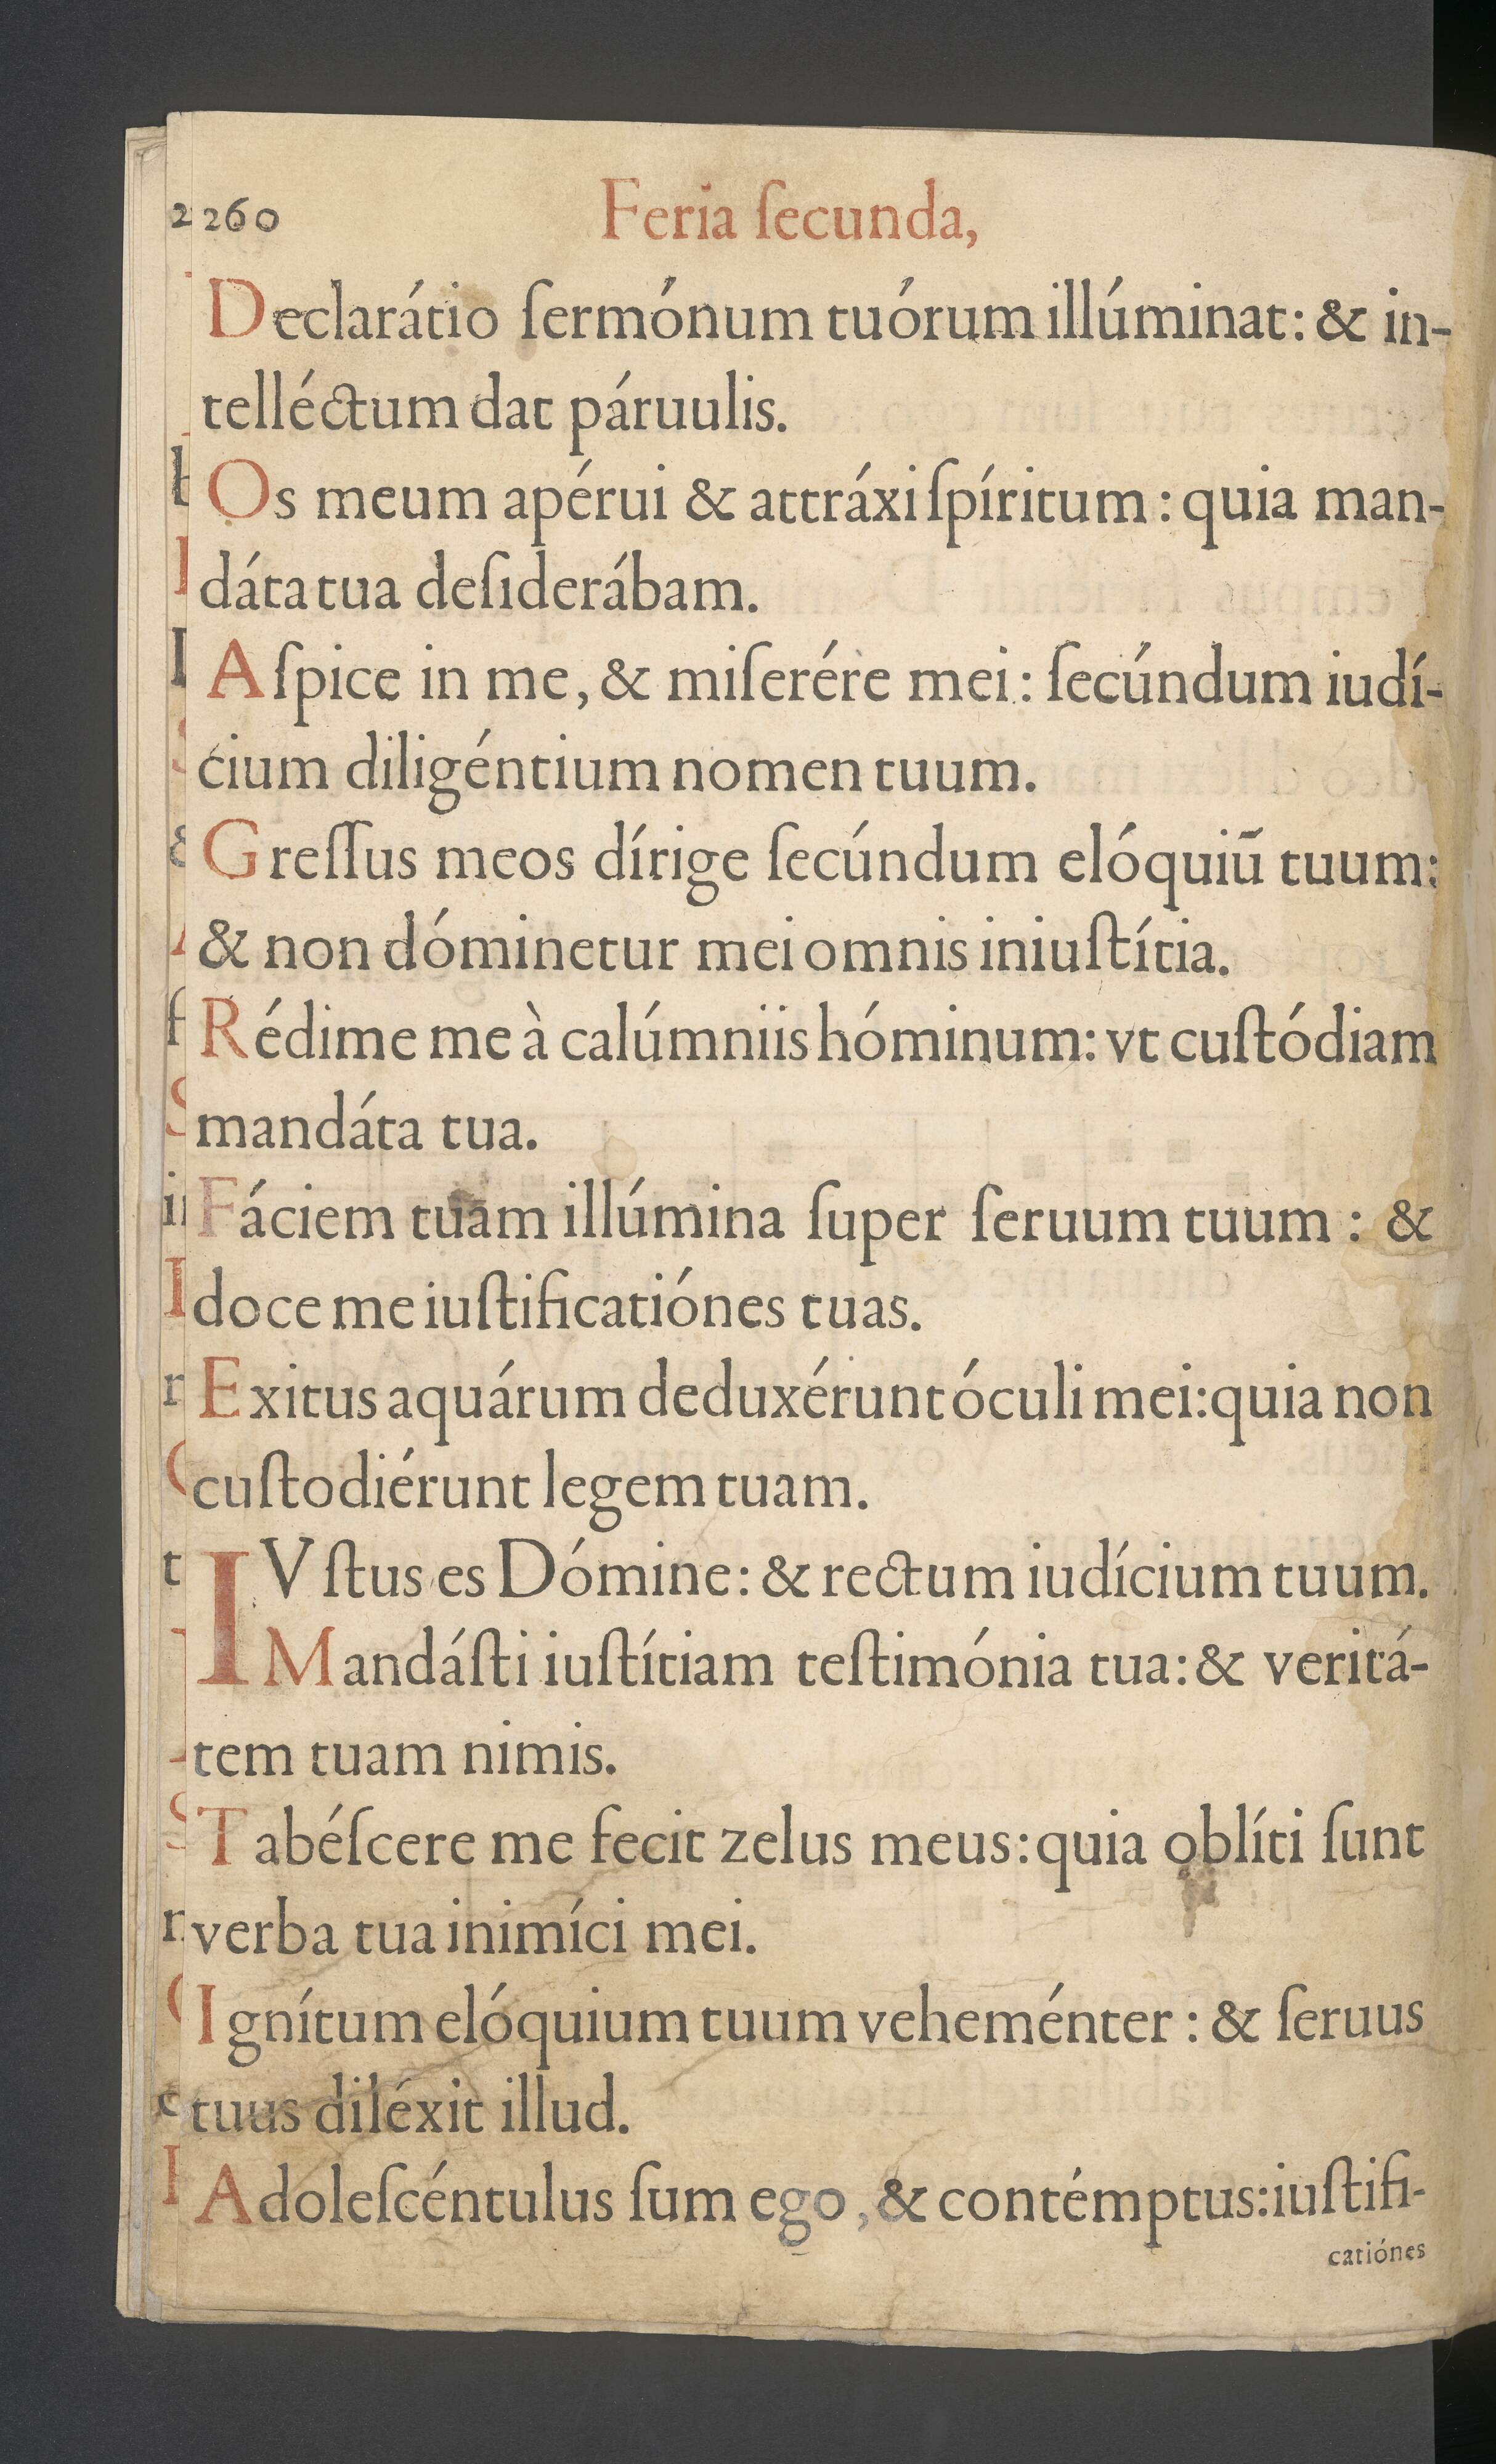 260 Feria ſecunda,
Declarátio ſermónum tuórum illúminat: & in-
telléctum dat páruulis.
Os meum apérui & attráxi ſpíritum: quia man-
dáta tua deſiderábam.
Aſpice in me, & miſerére mei: ſecúndum iudí-
cium diligéntium nomen tuum.
Greſſus meos dírige ſecúndum elóquiū tuum:
& non dóminetur mei omnis iniuſtítia.
Rédime me à calúmniis hóminum: vt cuſtódiam
mandáta tua.
Fáciem tuam illúmina ſuper ſeruum tuum: &
doce me iuſtificatiónes tuas.
Exitus aquárum deduxérunt óculi mei: quia non
cuſtodiérunt legem tuam.
IVſtus es Dómine: & rectum iudícium tuum.
Mandáſti iuſtítiam teſtimónia tua: & veritá-
tem tuam nimis.
Tabéſcere me fecit zelus meus: quia oblíti ſunt
verba tua inimíci mei.
Ignítum elóquium tuum veheménter: & ſeruus
tuus diléxit illud.
Adoleſcéntulus ſum ego, & contémptus: iuſtifi-
catiónes